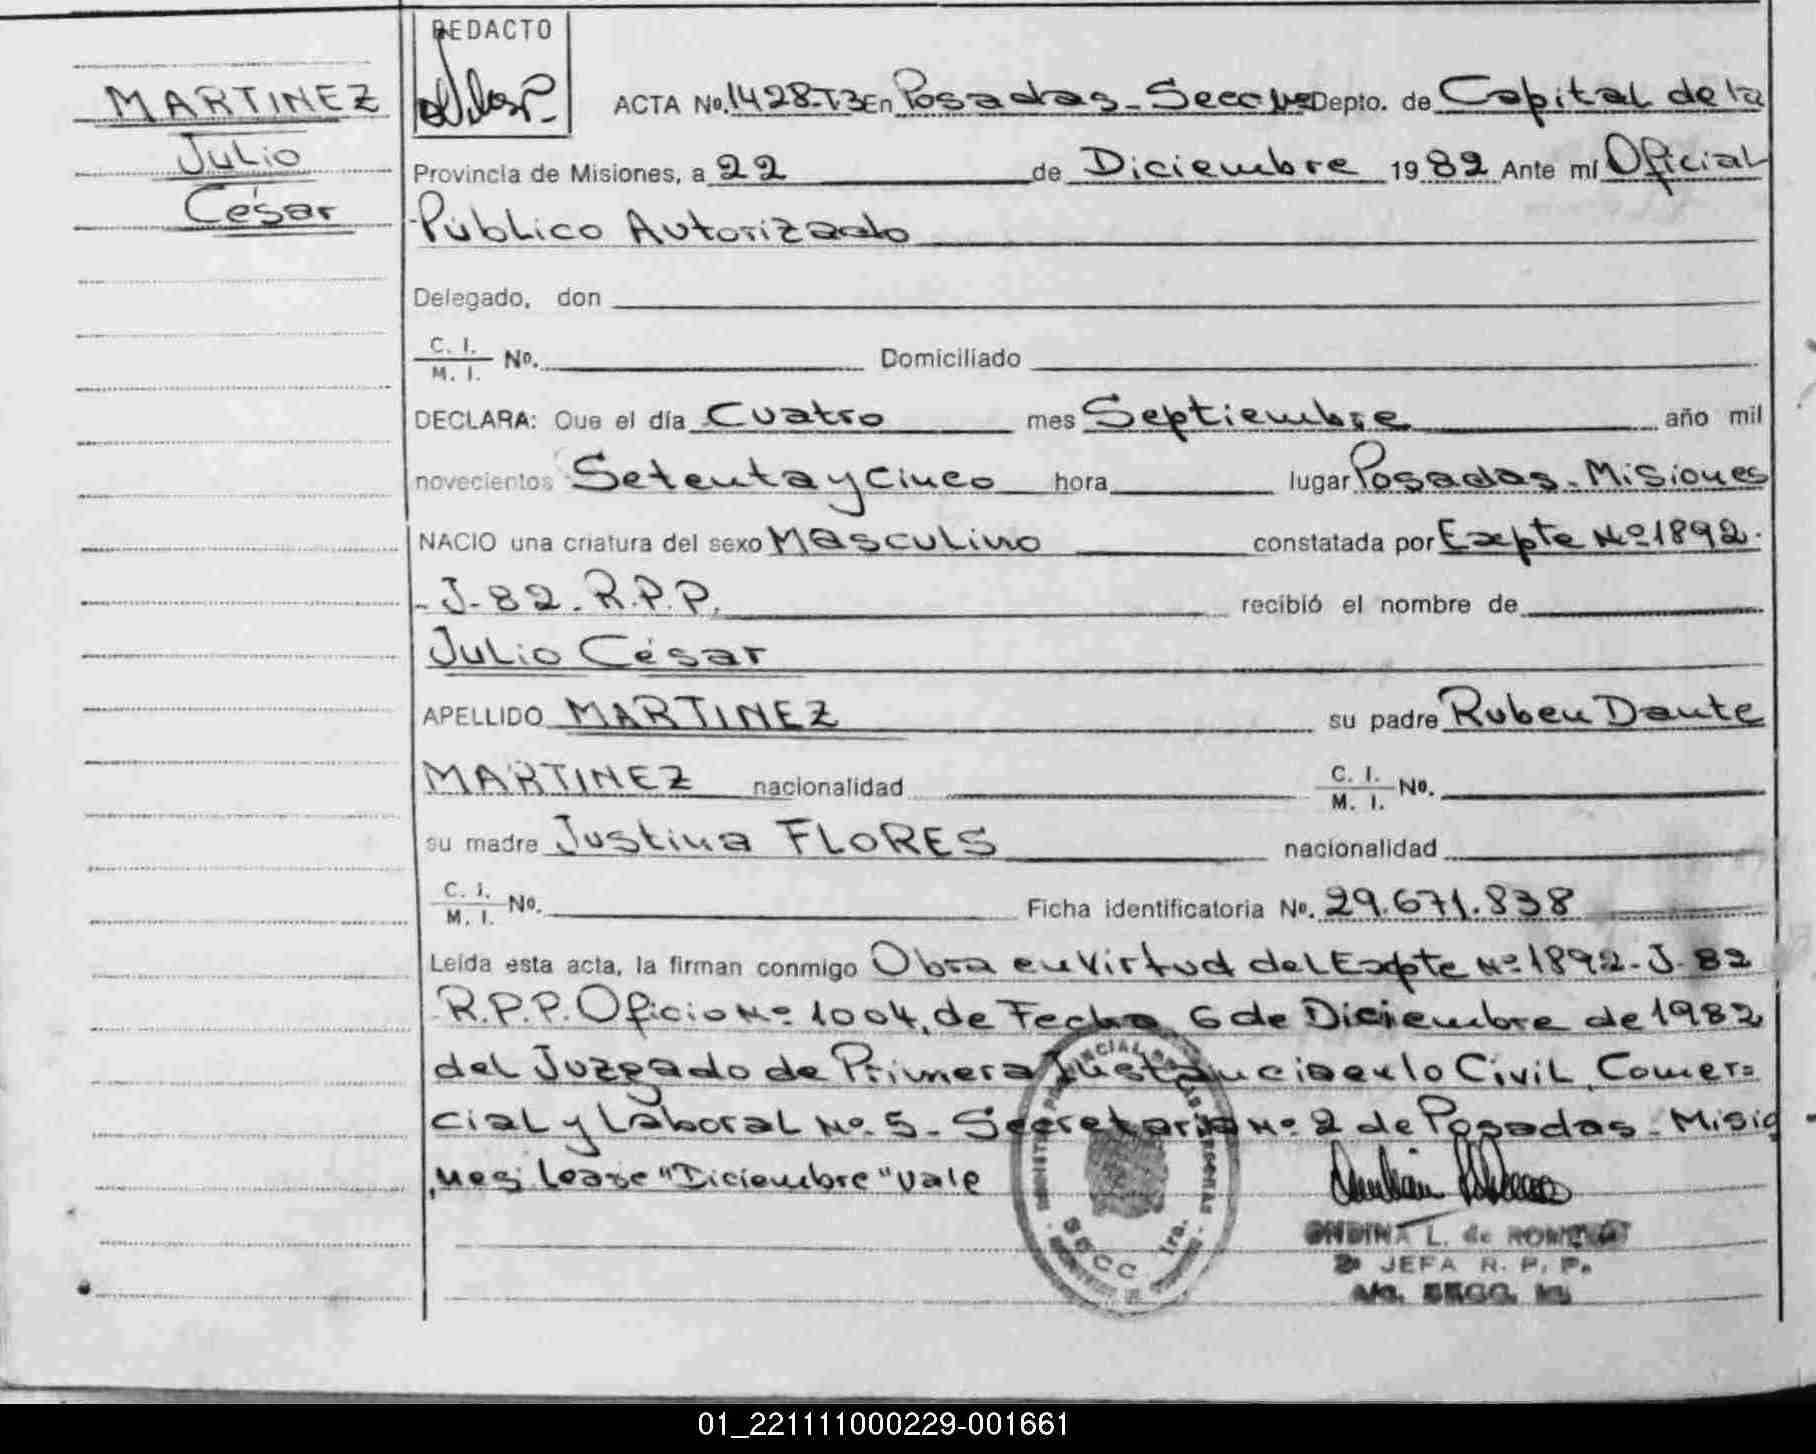 MARTINEZ
Julio
César
REDACTO
ACTA No. 1428-T3 En Posadas - Secc Depto. de Capital de la
Provincia de Misiones, a 22 de Diciembre 1982 Ante mí Oficial
Público Autorizado
Delegado, don
C. I. / M. I. No. Domiciliado
DECLARA: Que el día Cuatro mes Septiembre año mil
novecientos Setenta y Cinco hora lugar Posadas - Misiones
NACIO una criatura del sexo Masculino constatada por Expte Nº 1892-
- J-82. R.P.P. recibió el nombre de
Julio César
APELLIDO MARTINEZ su padre Ruben Dante
MARTINEZ nacionalidad C. I. / M. I. No.
su madre Justina FLORES nacionalidad
C. I. / M. I. No. Ficha identificatoria No. 29.671.838
Leída esta acta, la firman conmigo Obra en Virtud del Expte Nº 1892-J-82
R.P.P. Oficio Nº 1004, de Fecha 6 de Diciembre de 1982
del Juzgado de Primera Instancia en lo Civil, Comer=
cial y Laboral Nº 5 - Secretaria Nº 2 de Posadas - Misio
nes; Lease "Diciembre" vale
ONDINA L. de
2º JEFA R. P. P.
A/c. SECC. 1ra
SECC 1ra.
01_221111000229-001661